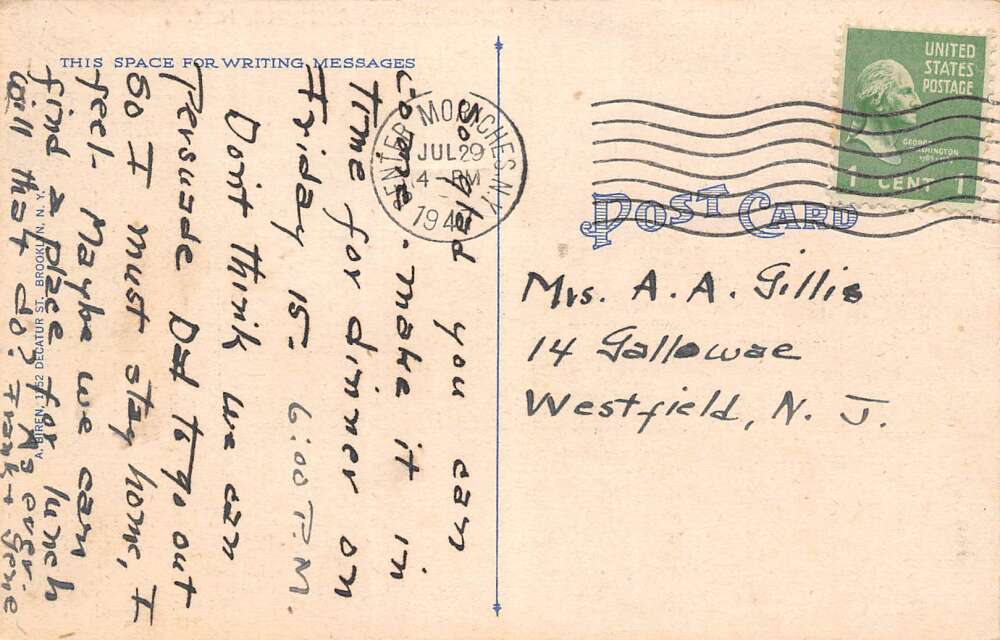 THIS SPACE FOR WRITING MESSAGES
So glad you can
come - make it in
time for dinner on
Friday 15 - 6:00 P.M.
Don't think we can
persuade Dad to go out
So I must stay home, I
feel - Maybe we can
find a place for lunch
will that do? As ever -
Frank + Gene
A. BIREN, 1152 DECATUR ST. BROOKLYN, N. Y.
CENTER MORICHES N.Y.
JUL 29
4 - PM
UNITED
STATES
POSTAGE
GEORGE WASHINGTON
1 CENT 1
POST CARD
Mrs. A. A. Gillis
14 Gallowae
Westfield, N. J.